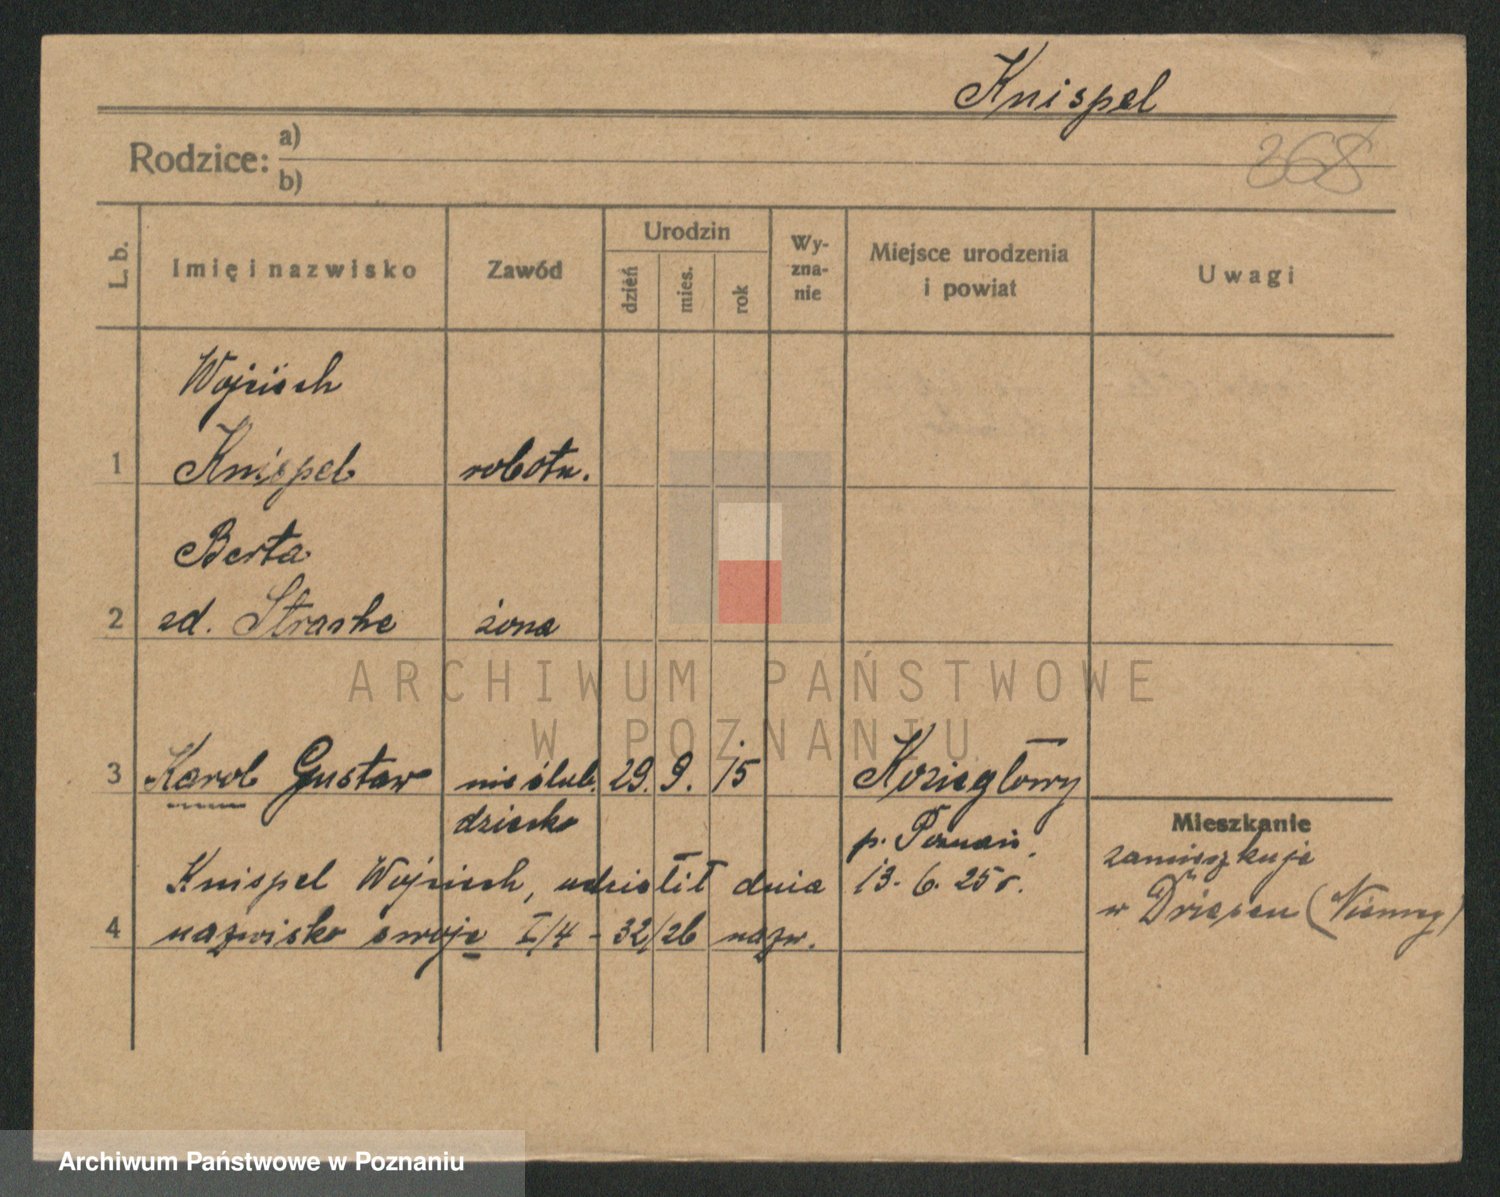 Knispel
368
Rodzice: a)
b)
L. b.
Imię i nazwisko
Zawód
Urodzin
dzień
mies.
rok
Wy-
zna-
nie
Miejsce urodzenia
i powiat
Uwagi
Wojciech
1 Knispel robotn.
Berta
2 zd. Straske żona
3 Karol Gustaw nieślub. 29. 9. 15 Koziegłowy
dziecko p. Poznań.
Mieszkanie
zamieszkuje
w Driesen (Niemcy)
Knispel Wojciech, udzielił dnia 13. 6. 25 r.
4 nazwisko swoje I/4 - 32/26 nazw.
ARCHIWUM PAŃSTWOWE
W POZNANIU
Archiwum Państwowe w Poznaniu